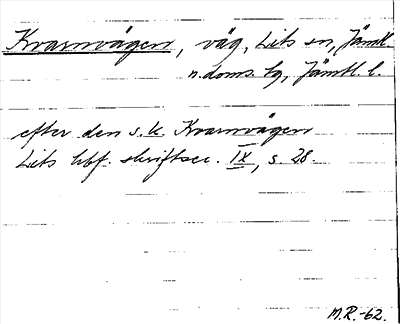 Kvarnvägen, väg, Lits sn, Jämtl.
n. doms. lg, Jämtl. l.
efter den s.k. Kvarnvägen
Lits hbf. skriftser. IX, s. 28.
M.R.-62.